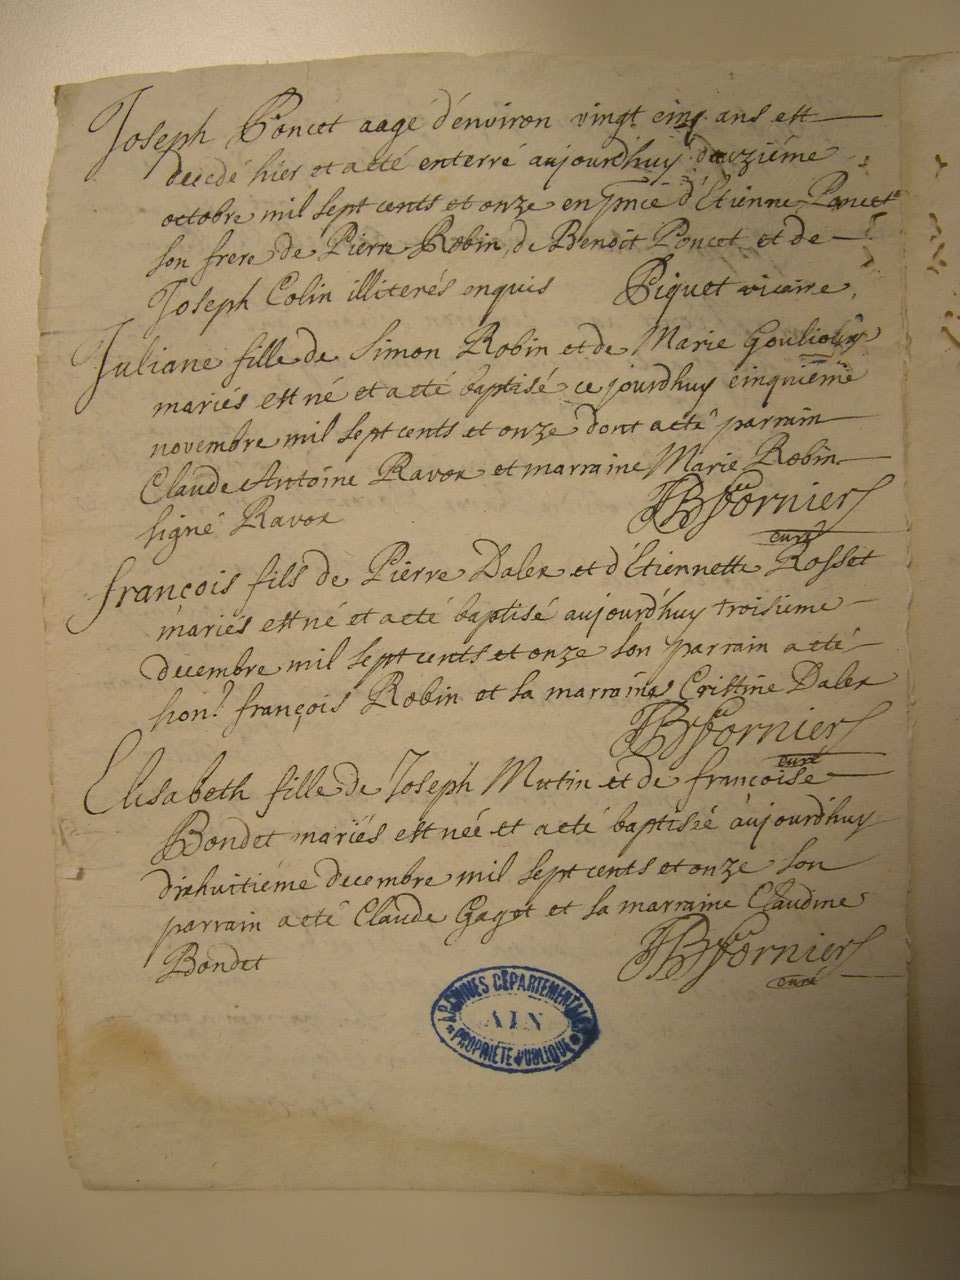 Joseph Poncet aagé d'environ vingt cinq ans est
decedé hier et a eté enterré aujourdhuy deuziéme
octobre mil sept cents et onze en pnce d'Etienne Poncet
son frere de Pierre Robin, de Benoit Poncet et de
Joseph Colin illiterés enquis Piquet vicaire.
Juliane fille de Simon Robin et de Marie
mariés est né et a eté baptisé ce jourdhuy cinquiéme
novembre mil sept cents et onze dont acté parrain
Claude Antoine Ravox et marraine Marie Robin
signé Ravox Fornier
curé
françois fils de Pierre Dalex et d'Etiennette Rosset
mariés est né et a eté baptisé aujourd'huy troisieme
decembre mil sept cents et onze son parrain a eté
hon.^t françois Robin et sa marraine Cristine Dalex
Fornier
curé
Elisabeth fille de Joseph Mutin et de francoise
Bondet mariés est née et a eté baptisée aujourd'huy
dixhuitiéme decembre mil sept cents et onze son
parrain a eté Claude Gaget et sa marraine Claudine
Bondet Fornier
curé
ARCHIVES DÉPARTEMENTALES
AIN
PROPRIÉTÉ PUBLIQUE